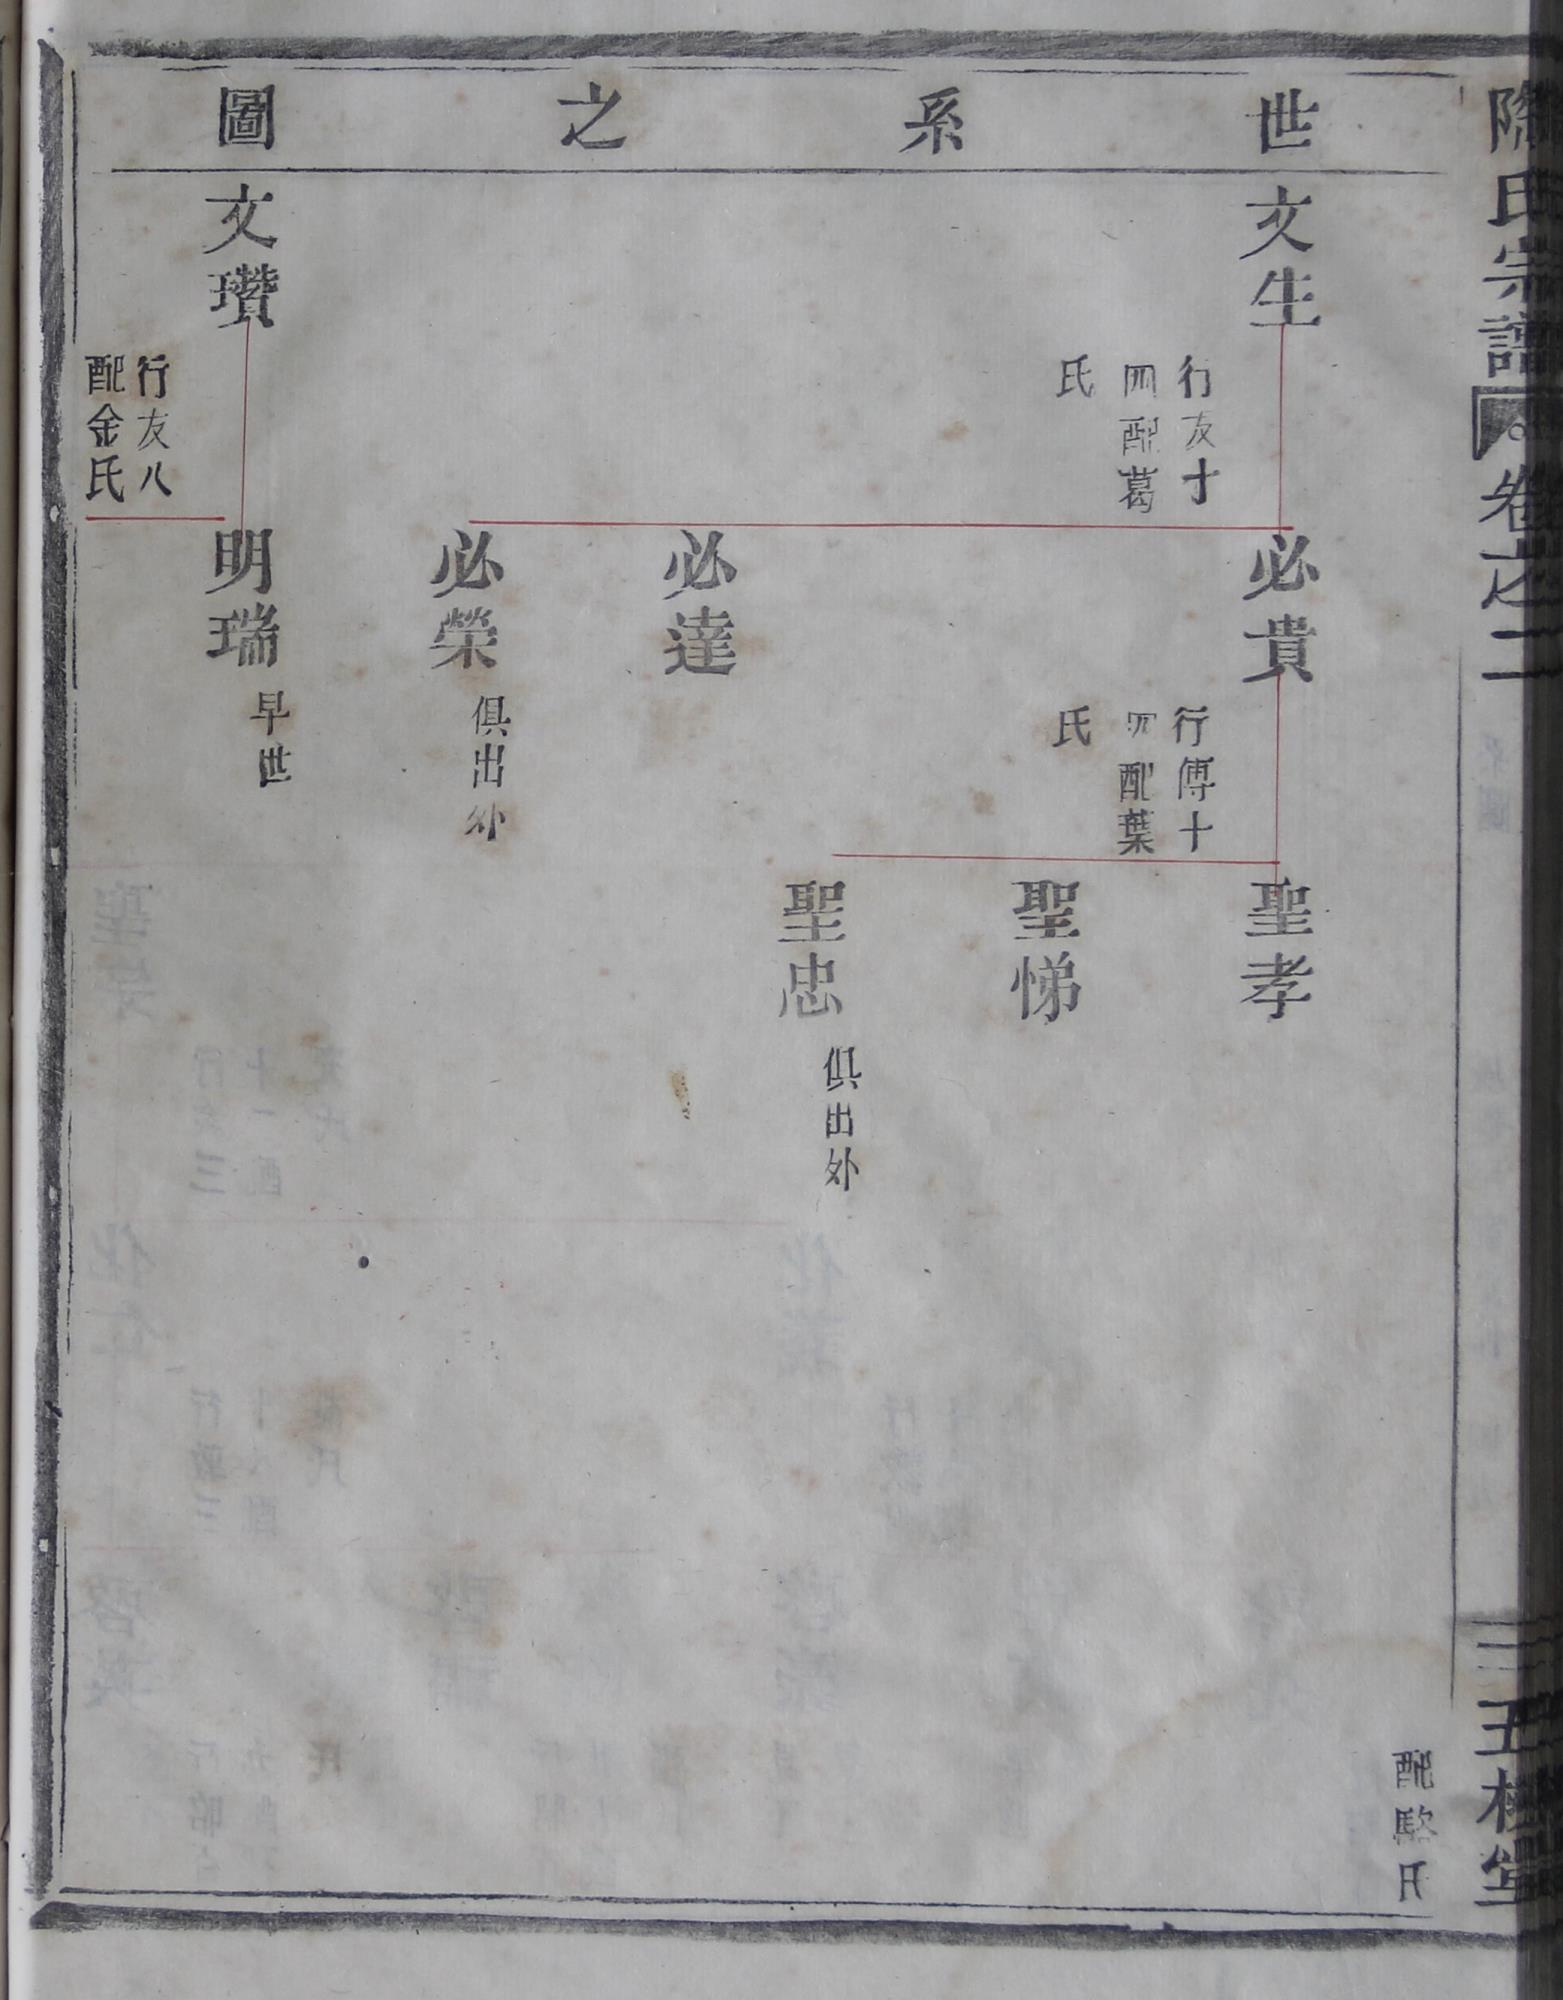 陶氏宗譜
卷之二
五柳堂
世系之圖
文生
行友十
四配葛
氏
必貴
行傅十
四配葉
氏
聖孝
聖悌
聖忠
俱出外
必達
必榮
俱出外
文瓚
行友八
配金氏
明瑞
早世
配駱氏